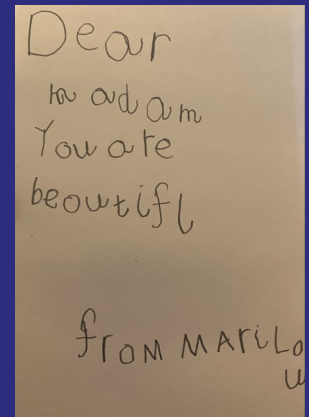 Dear
madam
You are
beowtifl
from MARiLo
u